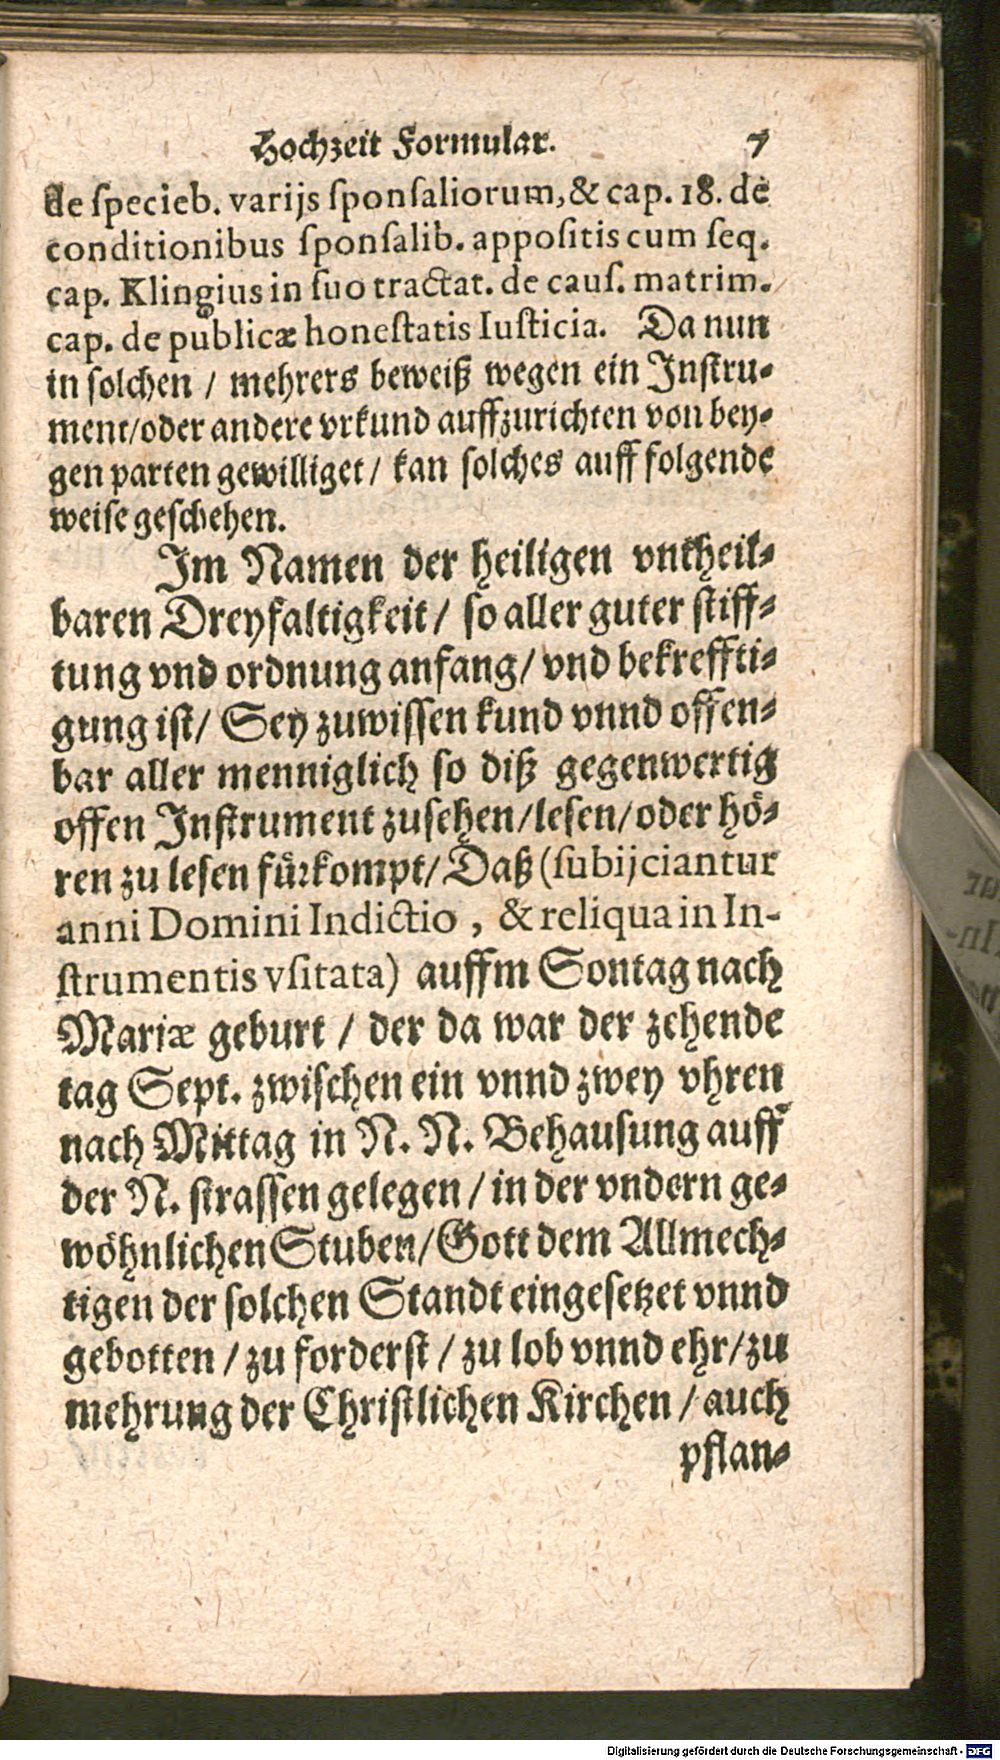 Hochzeit Formular. 7
de ſpecieb. varijs ſponſaliorum, & cap. 18. de
conditionibus ſponſalib. appoſitis cum ſeq.
cap. Klingius in ſuo tractat. de cauſ. matrim.
cap. de publicæ honeſtatis Iuſticia. Da nun
in ſolchen / mehrers beweiß wegen ein Inſtru⸗
ment/oder andere vrkund auffzurichten von bey⸗
gen parten gewilliget / kan ſolches auff folgende
weiſe geſchehen.
Im Namen der heiligen vntheil⸗
baren Dreyfaltigkeit / ſo aller guter ſtiff⸗
tung vnd ordnung anfang / vnd bekreffti⸗
gung iſt / Sey zuwiſſen kund vnnd offen⸗
bar aller menniglich ſo diß gegenwertig
offen Inſtrument zuſehen/leſen/oder hoͤ⸗
ren zu leſen fuͤrkompt/Daß (ſubijciantur
anni Domini Indictio , & reliqua in In-
ſtrumentis vſitata) auffm Sontag nach
Mariæ geburt / der da war der zehende
tag Sept. zwiſchen ein vnnd zwey vhren
nach Mittag in N. N. Behauſung auff
der N. ſtraſſen gelegen / in der vndern ge⸗
woͤhnlichen Stuben/Gott dem Allmech⸗
tigen der ſolchen Standt eingeſetzet vnnd
gebotten / zu forderſt / zu lob vnnd ehr/zu
mehrung der Chriſtlichen Kirchen / auch
pflan⸗
Digitalisierung gefördert durch die Deutsche Forschungsgemeinschaft - DFG